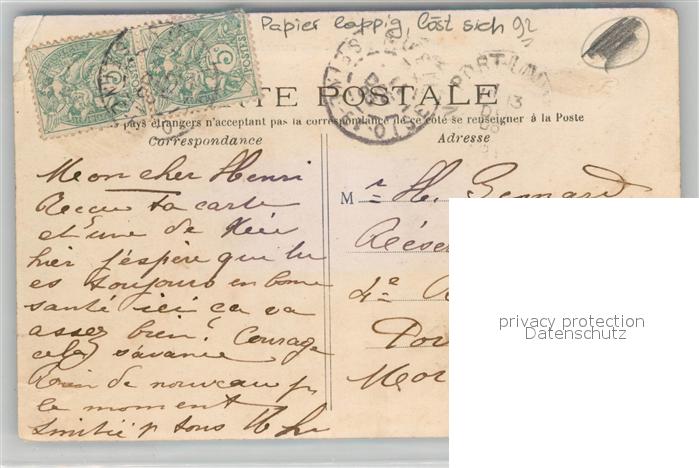 Papier lappig, löst sich 92
CARTE POSTALE
pays étrangers n'acceptant pas la correspondance de ce côté se renseigner à la Poste
Correspondance
Adresse
Mon cher Henri
Reçu ta carte
et une de
hier j'espère que tu
es toujours en bonne
santé ici ça va
assez bien. Courage
cela s'avance
Rien de nouveau pr
le moment
Amitié p tous
Mr H.
Rése
4e
Por
Mor
PORT-LOUIS
privacy protection
Datenschutz